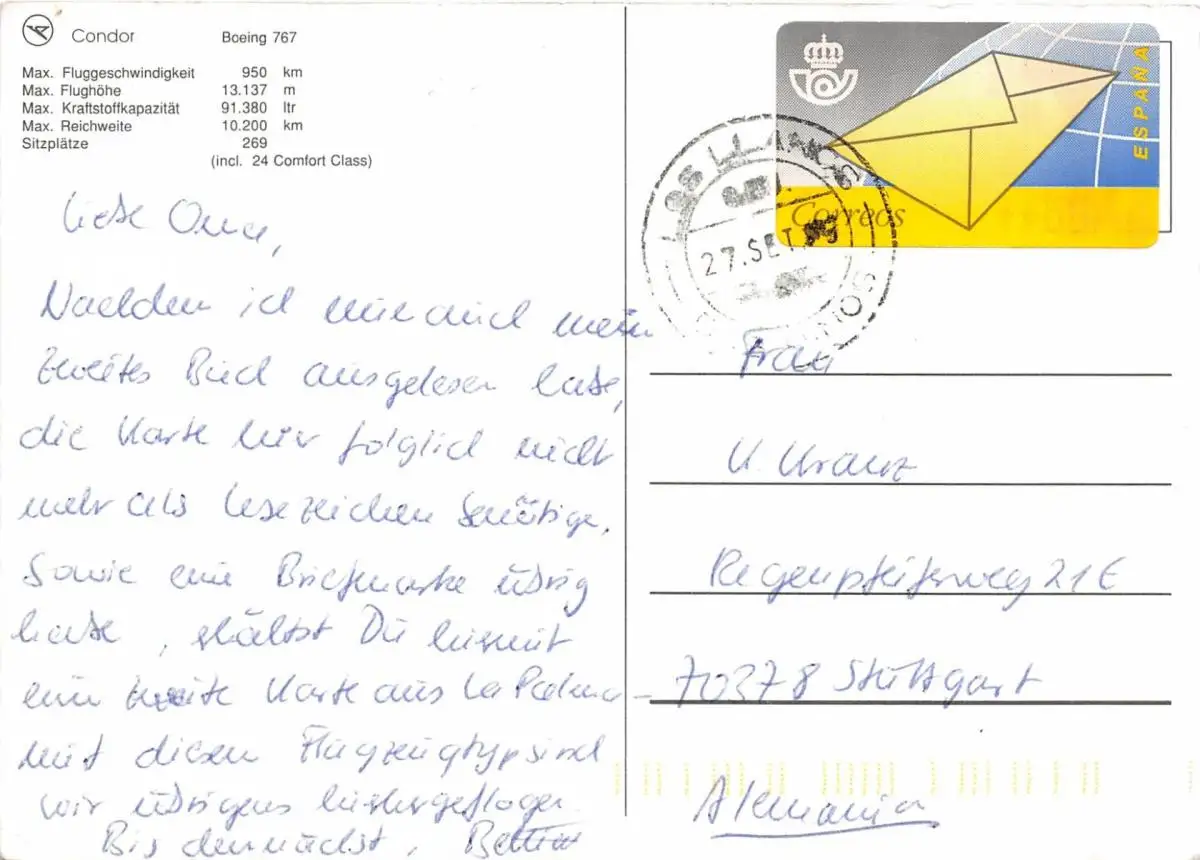 Condor Boeing 767
Max. Fluggeschwindigkeit 950 km
Max. Flughöhe 13.137 m
Max. Kraftstoffkapazität 91.380 ltr
Max. Reichweite 10.200 km
Sitzplätze 269
(incl. 24 Comfort Class)
Liebe Oma,
Nachdem ich nun auch mein
zweites Buch ausgelesen habe,
die Karte hier folglich nicht
mehr als Lesezeichen benötige,
Sowie eine Briefmarke übrig
habe, erhältst Du hiermit
eine zweite Karte aus La Palma –
mit diesem Flugzeugtyp sind
wir übrigens hierhergeflogen.
Bis demnächst, Bettina
ESPAÑA
Correos
LOS LLANOS
27. SET.
Frau
U. Kranz
Regenpfeiferweg 21E
70378 Stuttgart
Alemania